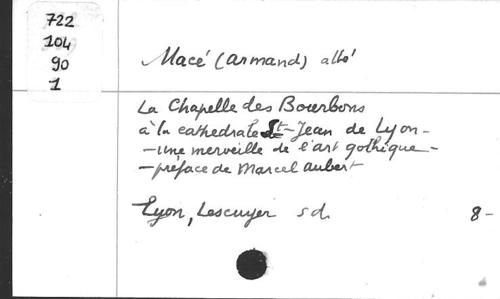 722
104
90
1
Macé (Armand) abbé
La Chapelle des Bourbons
à la cathedrale St-Jean de Lyon-
-une merveille de l'art gothique-
-préface de Marcel Aubert
Lyon, Lescuyer sd. 8-